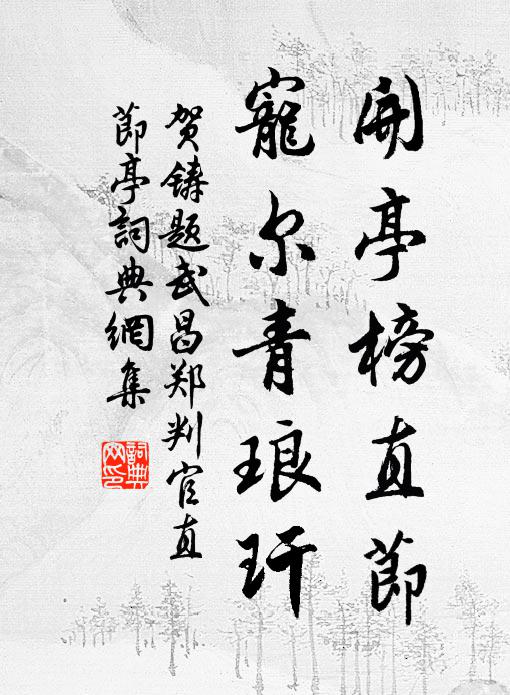 開亭榜直節
寵尔青琅玕
贺鋳题武昌郑判官直
節亭詞典網集
詞典
网印